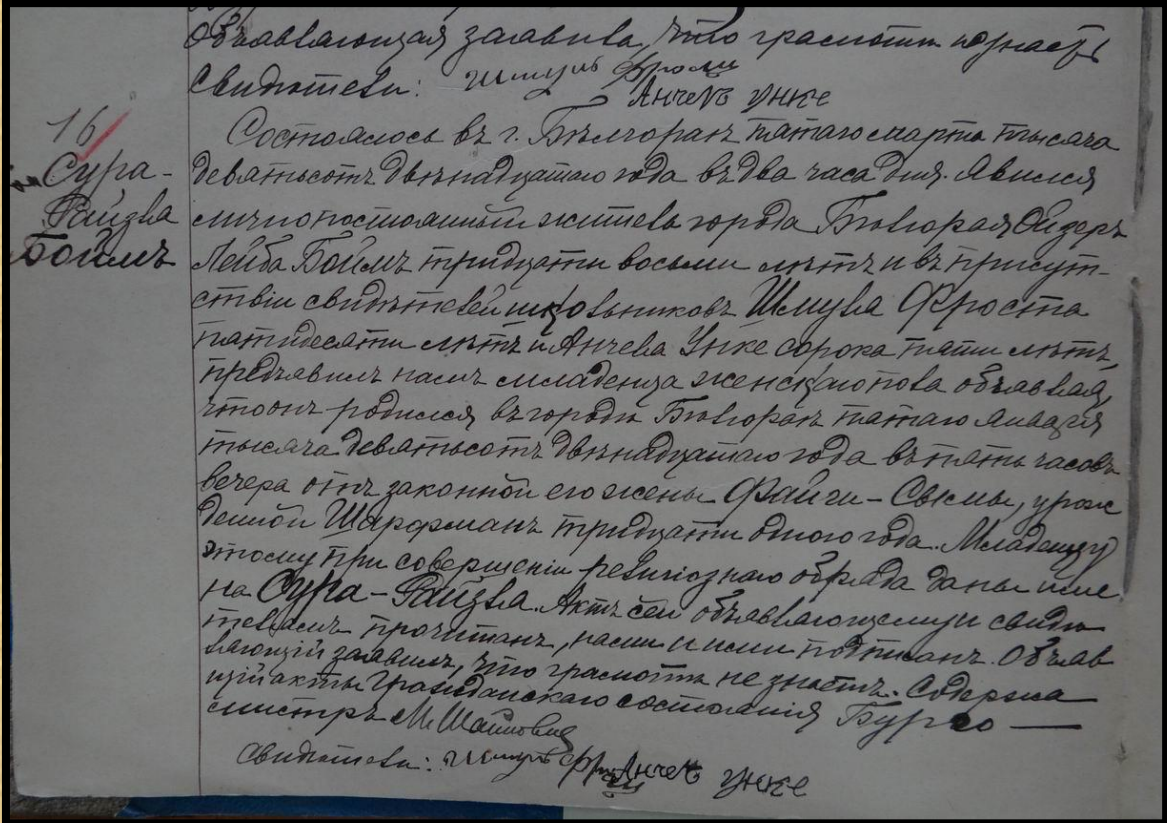 Объявляющая заявила, что грамоты не знаетъ
Свидѣтели: Шмуль Фроста
Анчель Унке
16
Сура-
Файзла
Боймъ
Состоялось въ г. Бѣлгораѣ пятаго марта тысяча
девятьсотъ двѣнадцатаго года въ два часа дня. Явился
лично постоянный житель города Бѣлгорая Ойзеръ
Лейба Боймъ тридцати восьми лѣтъ и въ присут-
ствіи свидѣтелей школьниковъ Шмуля Фроста
пятидесяти лѣтъ и Анчеля Унке сорока пяти лѣтъ,
предъявилъ намъ младенца женскаго пола объявляя,
что онъ родился въ городѣ Бѣлгораѣ пятаго января
тысяча девятьсотъ двѣнадцатаго года въ пять часовъ
вечера отъ законной его жены Файги-Свымы, урож
денной Шарфманъ тридцати одного года. Младенцу
этому при совершеніи религіознаго обряда даны име
на Сура-Файзла. Актъ сей объявляющему и свидѣ
телямъ прочитанъ, нами и ими подписанъ. Объяв
ляющій заявилъ, что грамоты не знаетъ. Содержа
щій акты Гражданскаго состоянія Бурго —
мистръ М. Шатовъ
Свидѣтели: Шмуль Анчель Унке